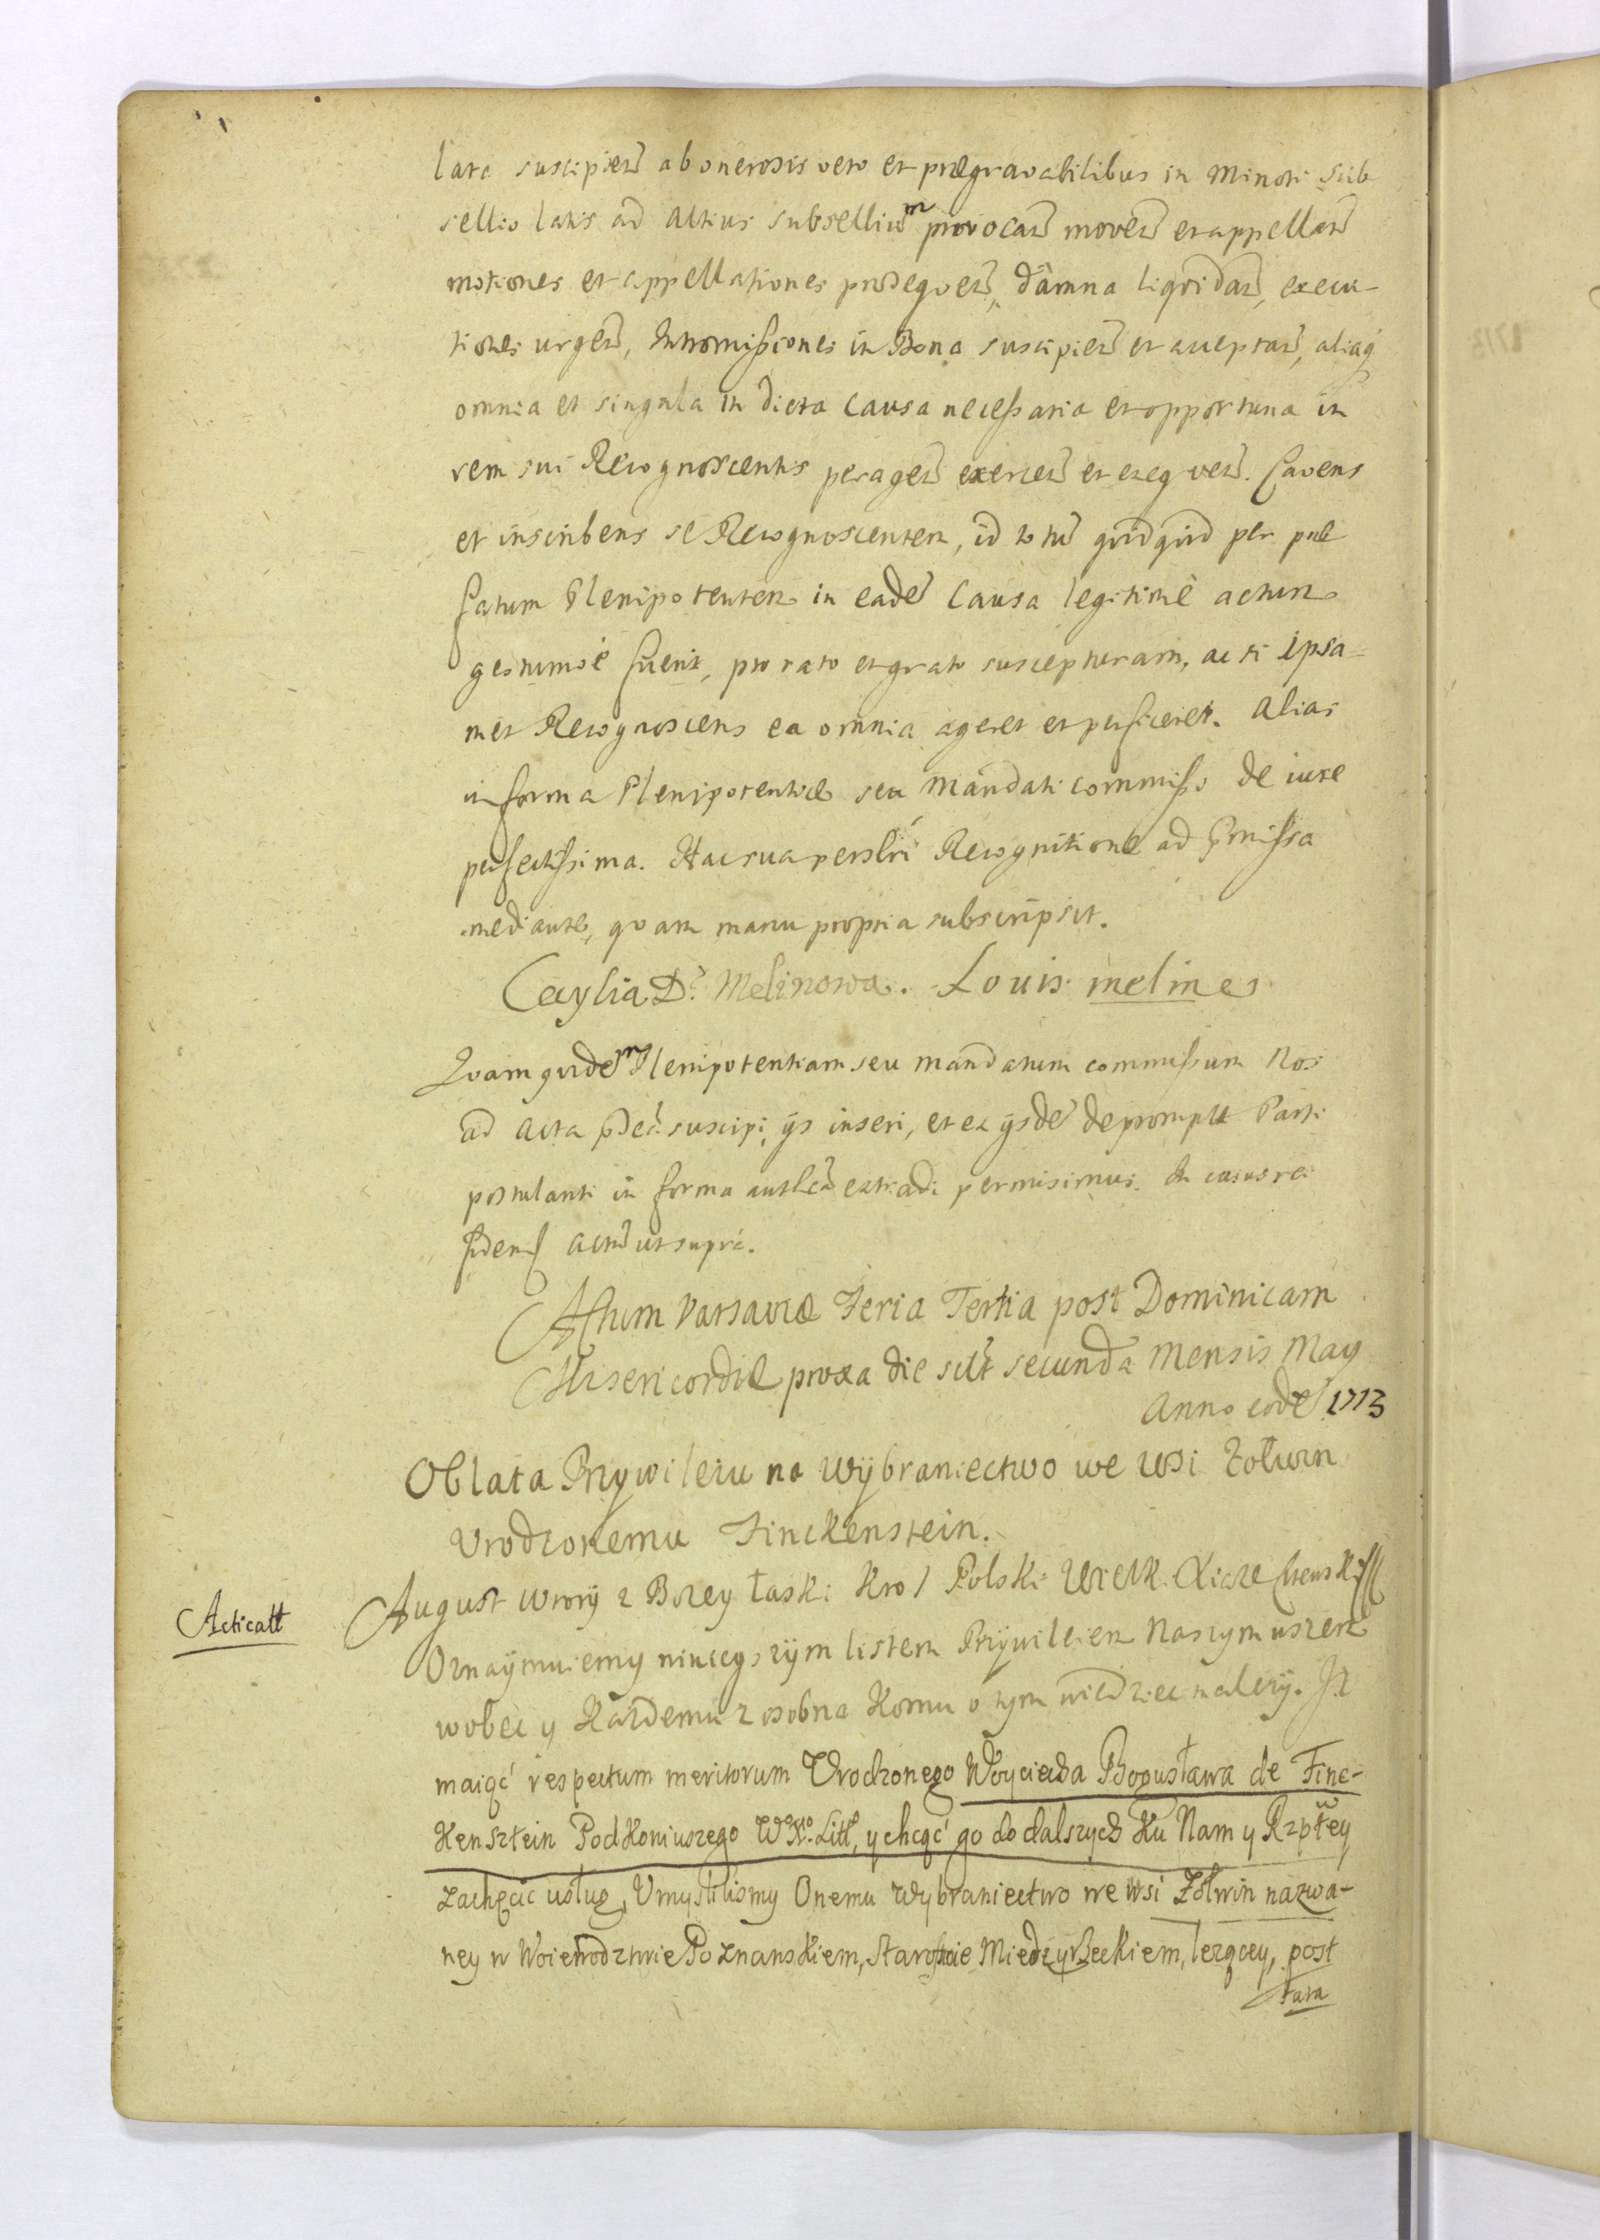 lata suscipien̄ ab onerosis vero et prægravabilibus in Minori Sub
sellio latis ad altius subselliūm provocan̄ moven̄ et appellan̄
motiones et appellationes prosequen̄, damna liquidan̄, execu-
tiones urgen̄, Intromissiones in Bona suscipien̄ et acceptan̄, aliaq
omnia et singula in dicta causa necessaria et opportuna in
rem sui Recognoscentis peragen̄ exercen̄ et exequen̄. Cavens
et inscribens se Recognoscentem, id totū quidquid per præ
fatum Plenipotentem in eadē Causa legitimè actum
gestumvè fuerit, pro rato et grato suscepturam, ac si ipsa-
met Recognoscens ea omnia ageret et perficeret. Alias
in forma Plenipotentiæ seu Mandati commissi de iure
perfectissima. Hac sua persōnli Recognitione ad præmissa
mediante, quam manu propria subscripsit.
Cecylia D. Melinowa. Louis melines
Quam quidēm Plenipotentiam seu mandatum commissum Nos
ad Acta suscipi, ijs inseri, et ex ijsdē depromptæ Parti
postulanti in forma authcā extradi permisimus. In cuius rei
fidem actū ut supra.
Actum Varsaviæ Feria Tertia post Dominicam
Misericordiæ proxa die scilt secunda Mensis May
Anno eodē 1713
Oblata Przywileiu na Wybraniectwo we Wsi Zołwin
Urodzonemu Finckenstein.
Acticatt
August wtory z Bozey łaski Krol Polski Wielk. Xiaze Litewski
Oznaymuiemy ninieyszym listem Przywileiem Naszym wszem
wobec y kazdemu z osobna komu o tym wiedziec nalezy. Iz
maiąć respectum meritorum Urodzonego Woyciecha Bogusława de Finc-
kensztein Podkoniuszego W. X. Litt, y chcąć go do dalszych ku Nam y Rzpłtey
zachęcic usług, Umyslilismy Onemu Wybraniectwo we Wsi Zołwin nazwa-
ney w Woiewodztwie Poznanskiem, Starostwie Miedzyrzeckiem, lezącey, post
fata